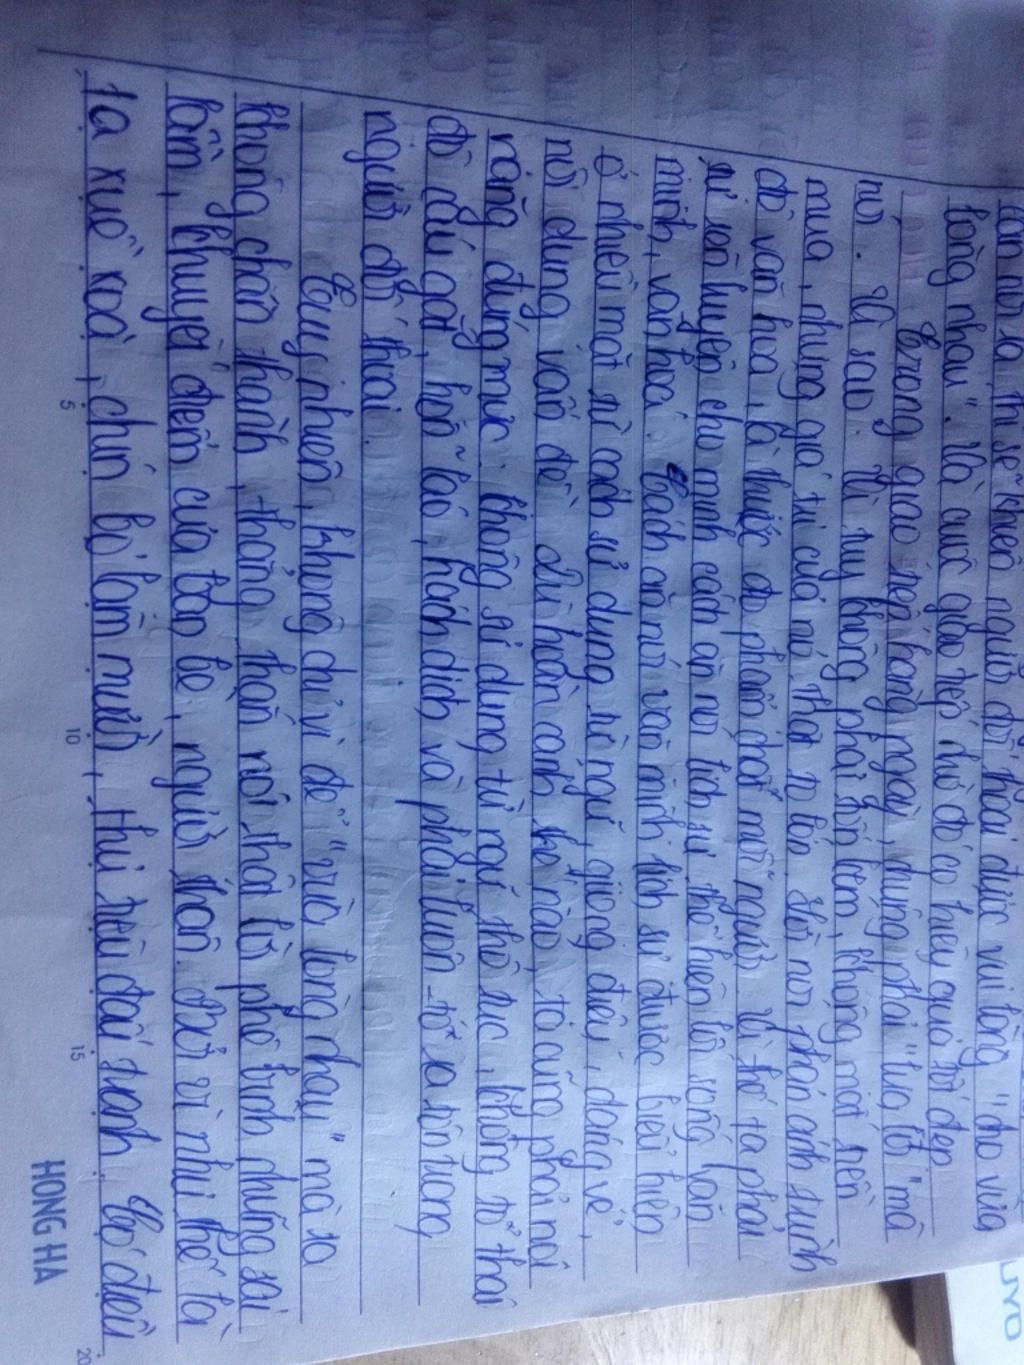 năn nỉ ta thì sẽ khiến người đối thoại được vui lòng "cho vừa
lòng nhau". Và cuộc giao tiếp nhờ đó có hiệu quả tốt đẹp
Trong giao tiếp hằng ngày, chúng phải "lựa lời" mà
nói. Vì sao? Vì tuy không phải tìm kiếm, không mất tiền
mua, nhưng giá trị của nó thật to lớn. Lời nói phản ánh trình
độ văn hóa là thước đo phẩm chất mỗi người. Vì thế ta phải
rèn luyện cho mình cách ăn nói lịch sự thể hiện lối sống văn
minh, văn hoá. Cách ăn nói văn minh lịch sự được biểu hiện
ở nhiều mặt từ cách sử dụng từ ngữ, giọng điệu, dáng vẻ,
nội dung vấn đề. Dù hoàn cảnh thế nào, ta cũng phải nói
năng đúng mực: không sử dụng từ ngữ thô tục, không tỏ thái
độ cáu gắt, hỗn láo, hách dịch và phải luôn tỏ ra tôn trọng
người đối thoại.
Tuy nhiên, không chỉ vì để "vừa lòng nhau" mà ta
không chân thành, thẳng thắn nói thật lời phê bình những sai
lầm, khuyết điểm của bạn bè, người thân. Bởi vì như thế là
ta xuê xoà, chín bỏ làm mười, thui rèu dấu ranh. Có điều
HONG HA
5
10
15
20